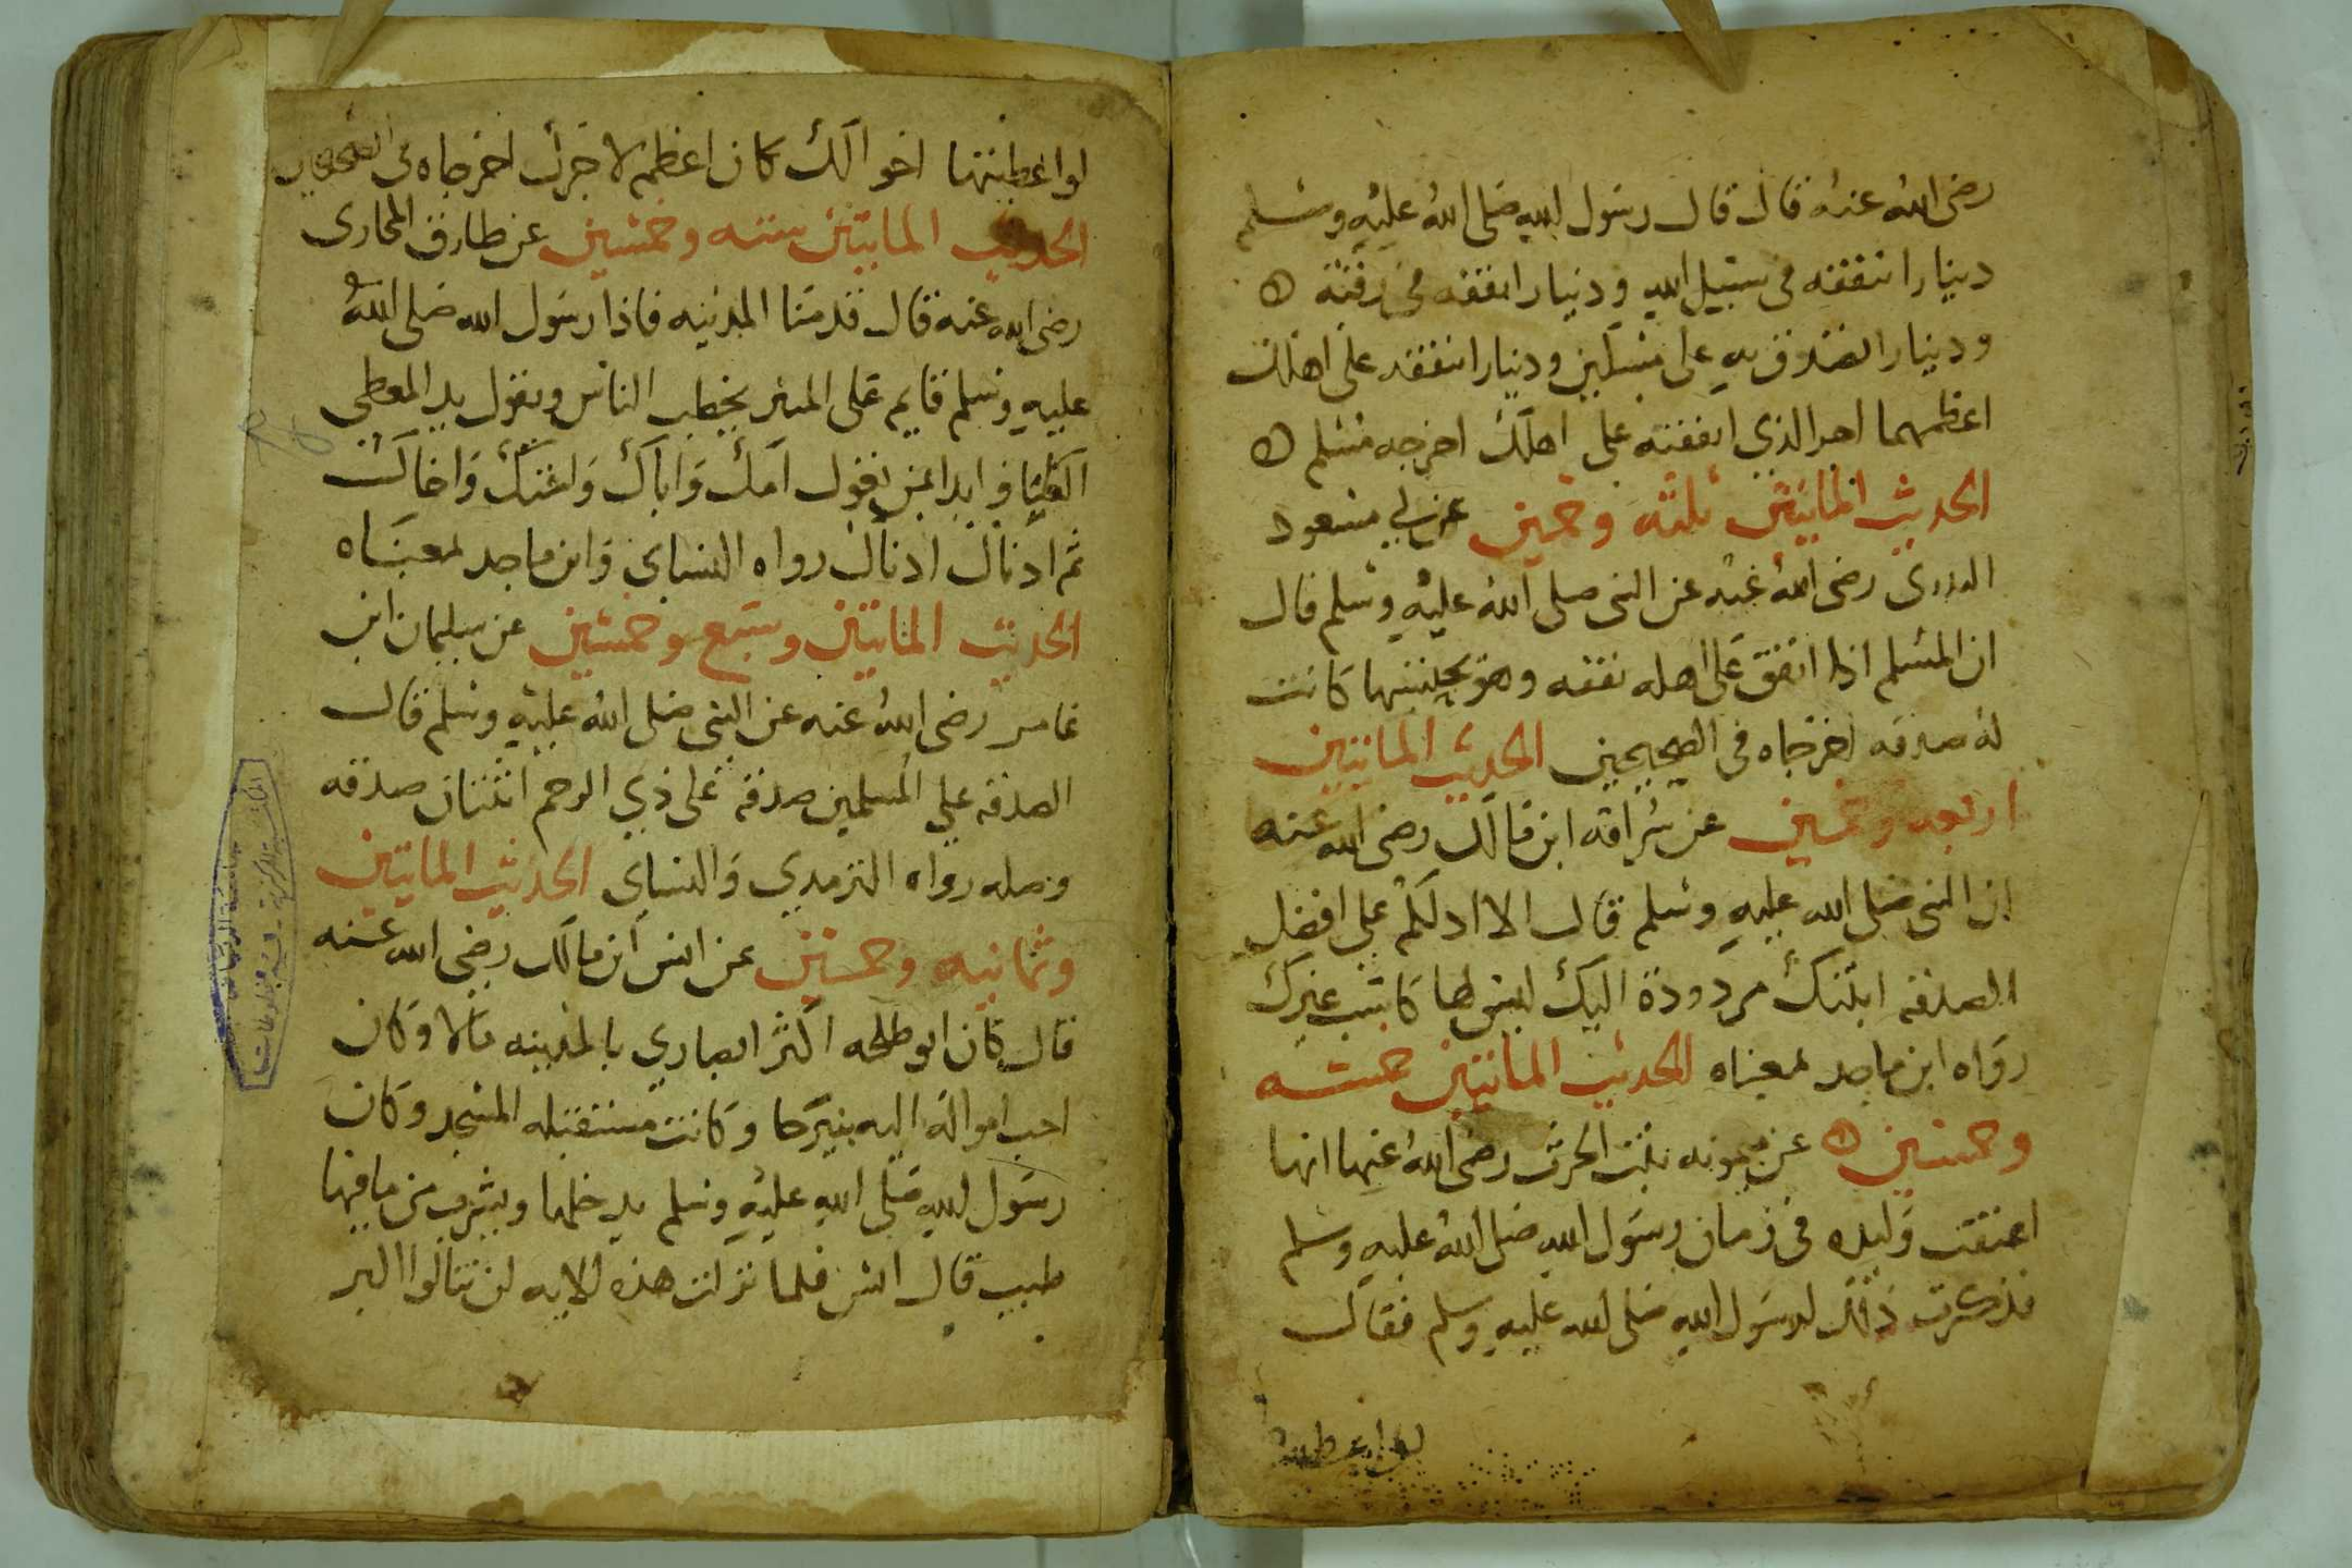 رضى الله عنه قال قال رسول الله صلى الله عليه وسلم
دينارا تنفقه في سبيل الله ودينارا انفقه في رقبة
ودينارا تصدق به على مسكين ودينارا تنفقه على اهلك
اعظمهما اجرا الذي انفقته على اهلك اخرجه مسلم
الحديث الماتين ثلثه وخمسين عن ابي مسعود
البدرى رضى الله عنه عن النبى صلى الله عليه وسلم قال
ان المسلم اذا انفق على اهله نفقه وهو يحتسبها كانت
له صدقه اخرجاه فى الصحيحين الحديث الماتين
اربعه وخمسين عن سراقه ابن مالك رضى الله عنه
ان النبى صلى الله عليه وسلم قال الا ادلكم على افضل
الصدقه ابنتك مردودة اليك ليس لها كاسب غيرك
رواه ابن ماجه بمعناه الحديث الماتين خمسه
وخمسين عن ميمونه بنت الحرث رضى الله عنها انها
اعتقت وليده فى زمان رسول الله صلى الله عليه وسلم
فذكرت ذلك لرسول الله صلى الله عليه وسلم فقال
لو اعطيتها
لو اعطيتها اخوالك كان اعظم لاجرك اخرجاه فى الصحيحين
الحديث الماتين سته وخمسين عن طارق المحاربى
رضى الله عنه قال قدمنا المدينه فاذا رسول الله صلى الله
عليه وسلم قايم على المنبر يخطب الناس ويقول يد المعطي
العليا وابدا بمن تعول امك واباك واختك واخاك
ثم ادناك ادناك رواه النساي وابن ماجه بمعناه
الحديث الماتين وسبع وخمسين عن سليمان ابن
عامر رضى الله عنه عن النبى صلى الله عليه وسلم قال
الصدقه علي المسلمين صدقه على ذي الرحم اثنتان صدقه
وصله رواه الترمدي والنساي الحديث الماتين
وثمانيه وخمسين عن انس ابن مالك رضى الله عنه
قال كان ابو طلحه اكثر انصاري بالمدينه مالا وكان
احب امواله اليه بيرحا وكانت مستقبله المسجد وكان
رسول الله صلى الله عليه وسلم يدخلها ويشرب من ما فيها
طيب قال انس فلما نزلت هذه الايه لن تنالوا البر